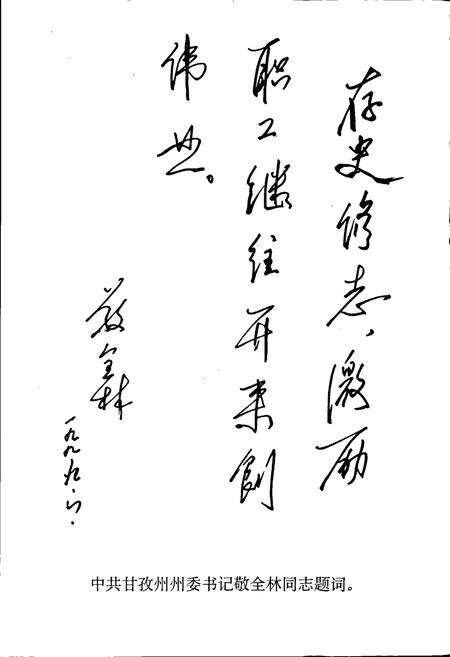 存史修志、激励
职工继往开来创
伟业。
敬全林
一九九九.六.
中共甘孜州州委书记敬全林同志题词。